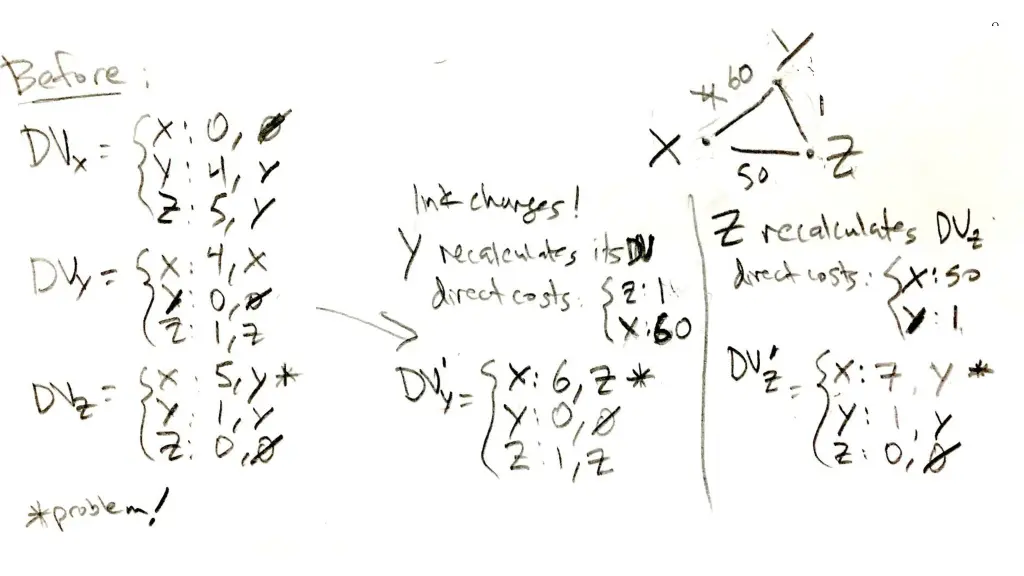 Before:
DVx =
X: 0, ∅
Y: 4, Y
Z: 5, Y
DVy =
X: 4, X
Y: 0, ∅
Z: 1, Z
DVz =
X: 5, Y *
Y: 1, Y
Z: 0, ∅
*problem!
link changes!
Y recalculates its DV
direct costs:
Z: 1
X: 60
DV'y =
X: 6, Z *
Y: 0, ∅
Z: 1, Z
Y
4 60
1
X
Z
50
Z recalculates DVz:
direct costs:
X: 50
Y: 1
DV'z =
X: 7, Y *
Y: 1, Y
Z: 0, ∅